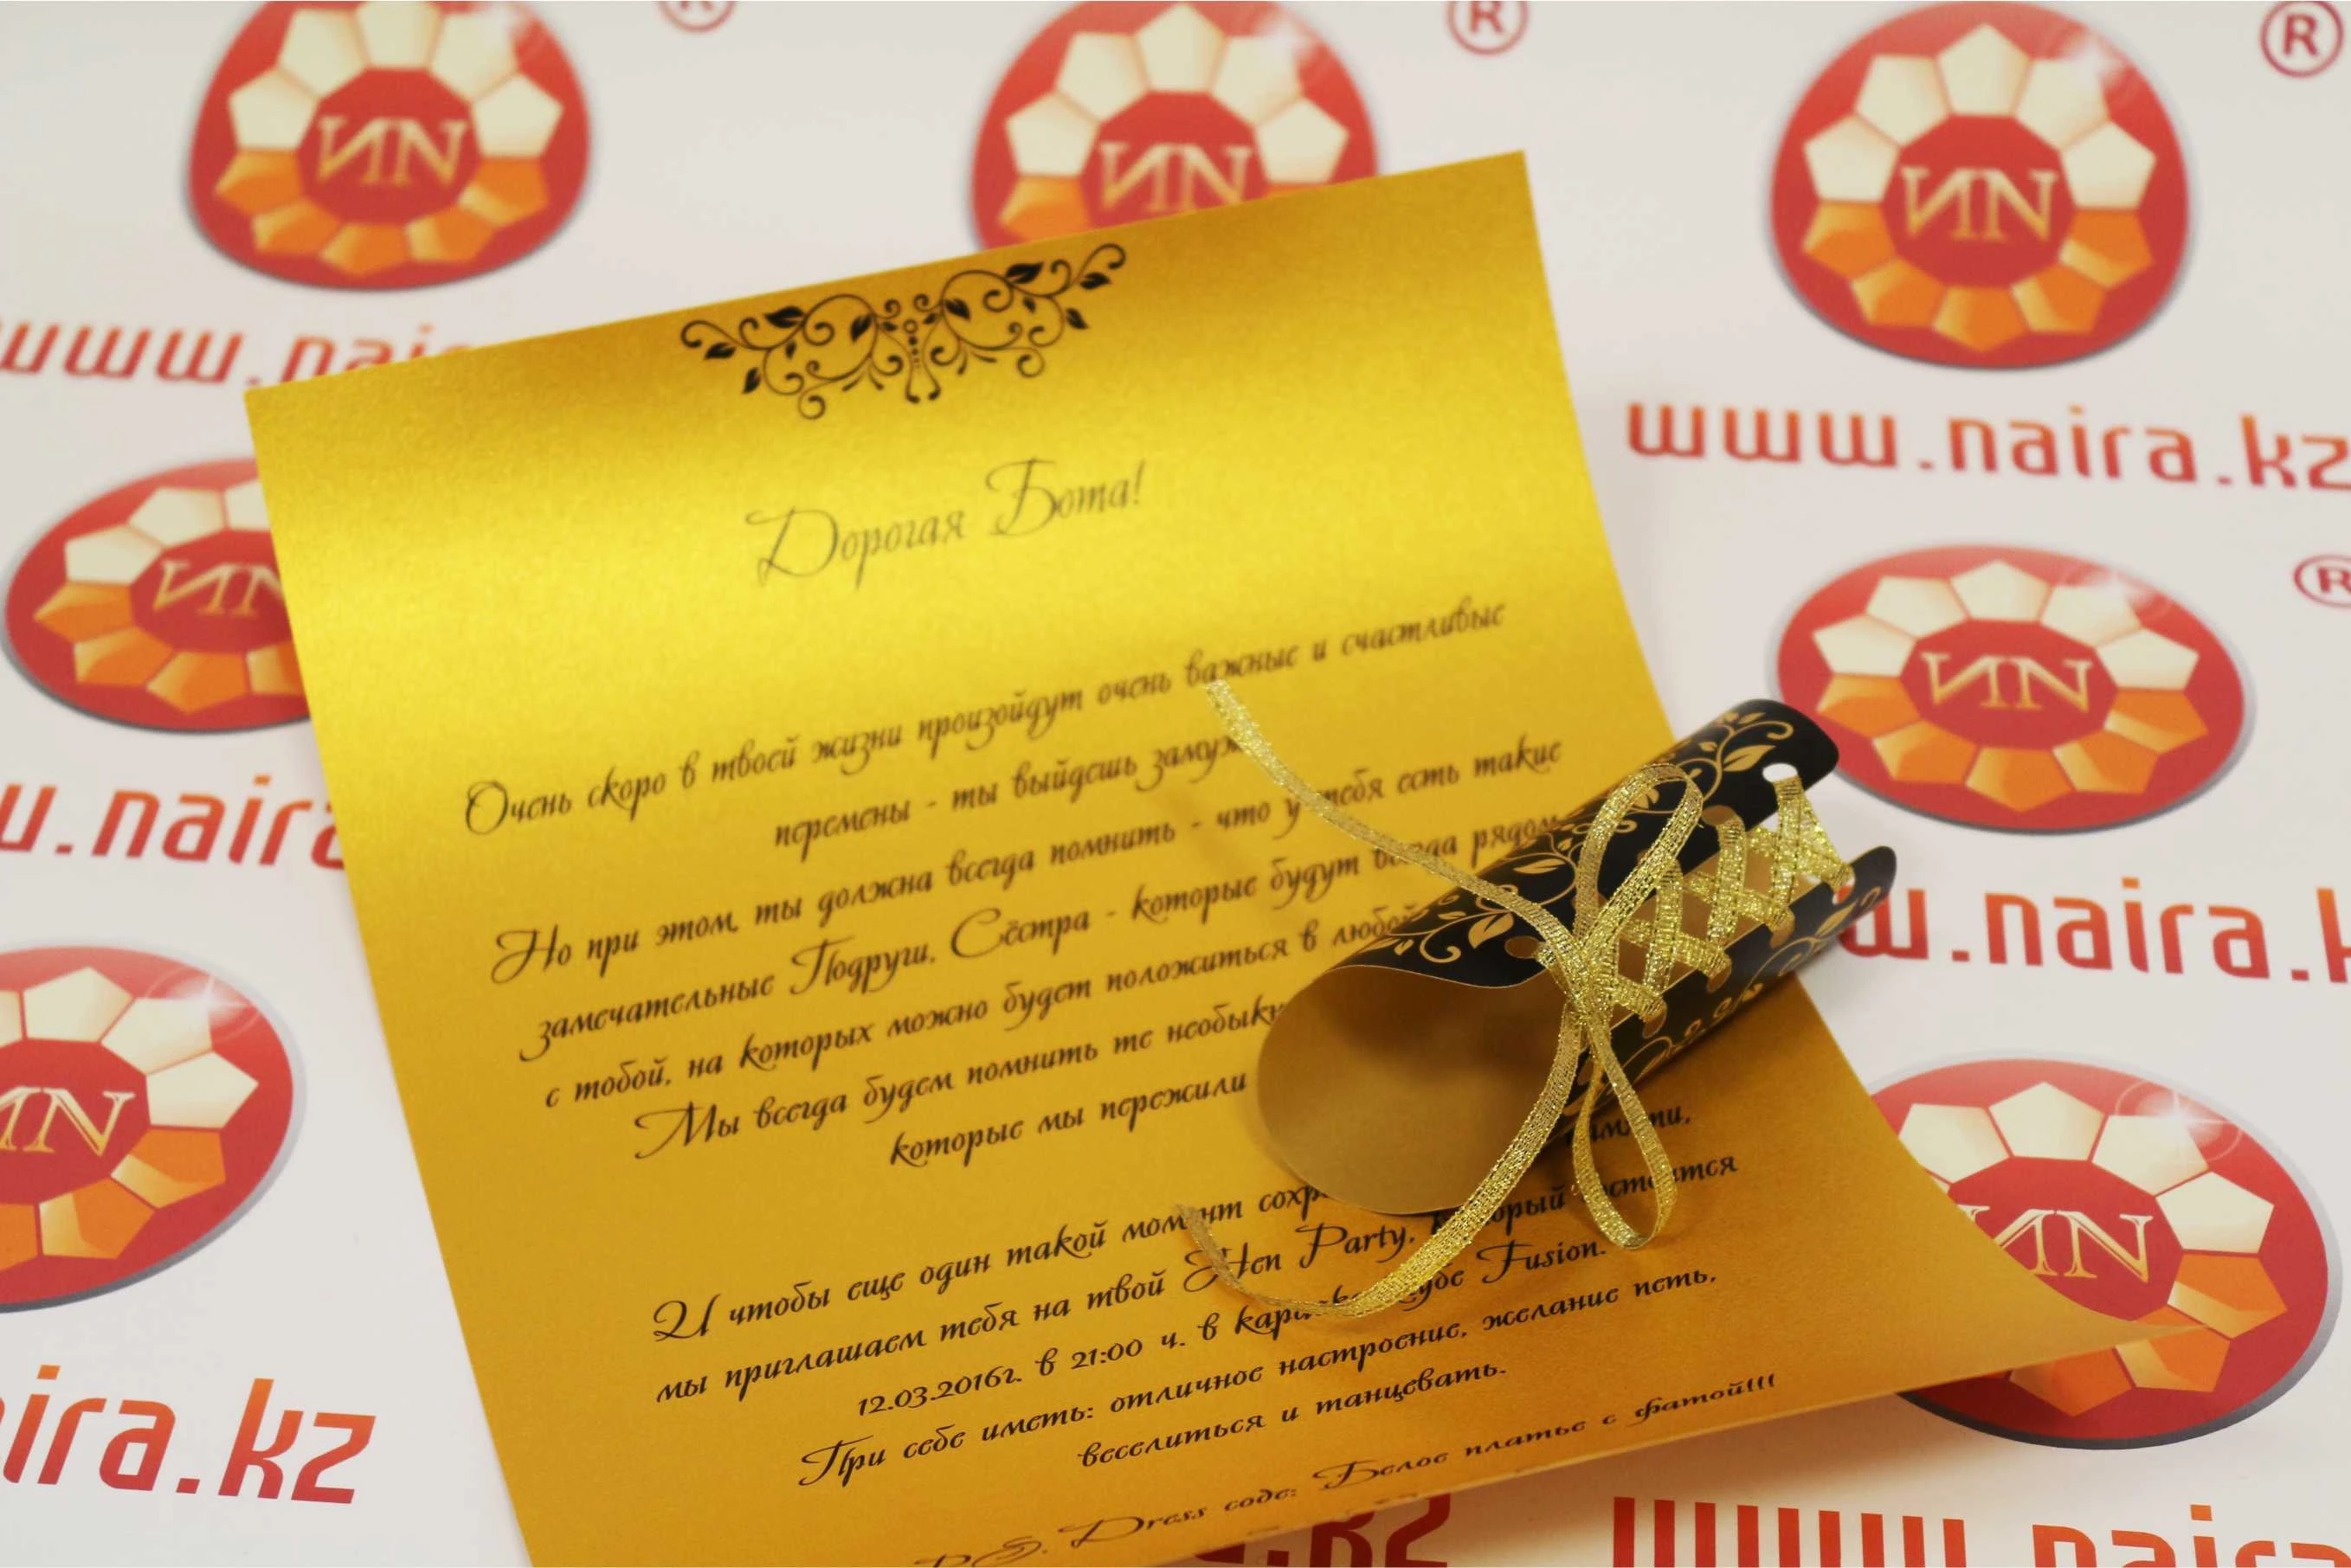 Дорогая Бота!
Очень скоро в твоей жизни произойдут очень важные и счастливые
перемены - ты выйдешь замуж
Но при этом, ты должна всегда помнить - что у тебя есть такие
замечательные Подруги, Сёстра - которые будут всегда рядом
с тобой, на которых можно будет положиться в любой
Мы всегда будем помнить те
которые мы пережили
И чтобы еще один такой момент
мы приглашаем тебя на твой Hen Party, который останется
12.03.2016г. в 21:00 ч. в караоке клубе Fusion.
При себе иметь: отличное настроение, желание петь,
веселиться и танцевать.
P.S. Dress code: Белое платье с фатой!!!
ИN
ИN
ИN
®
®
®
www.nai
www.naira.kz
ИN
ИN
®
w.naira
w.naira.k
ИN
ИN
ira.kz
.kz